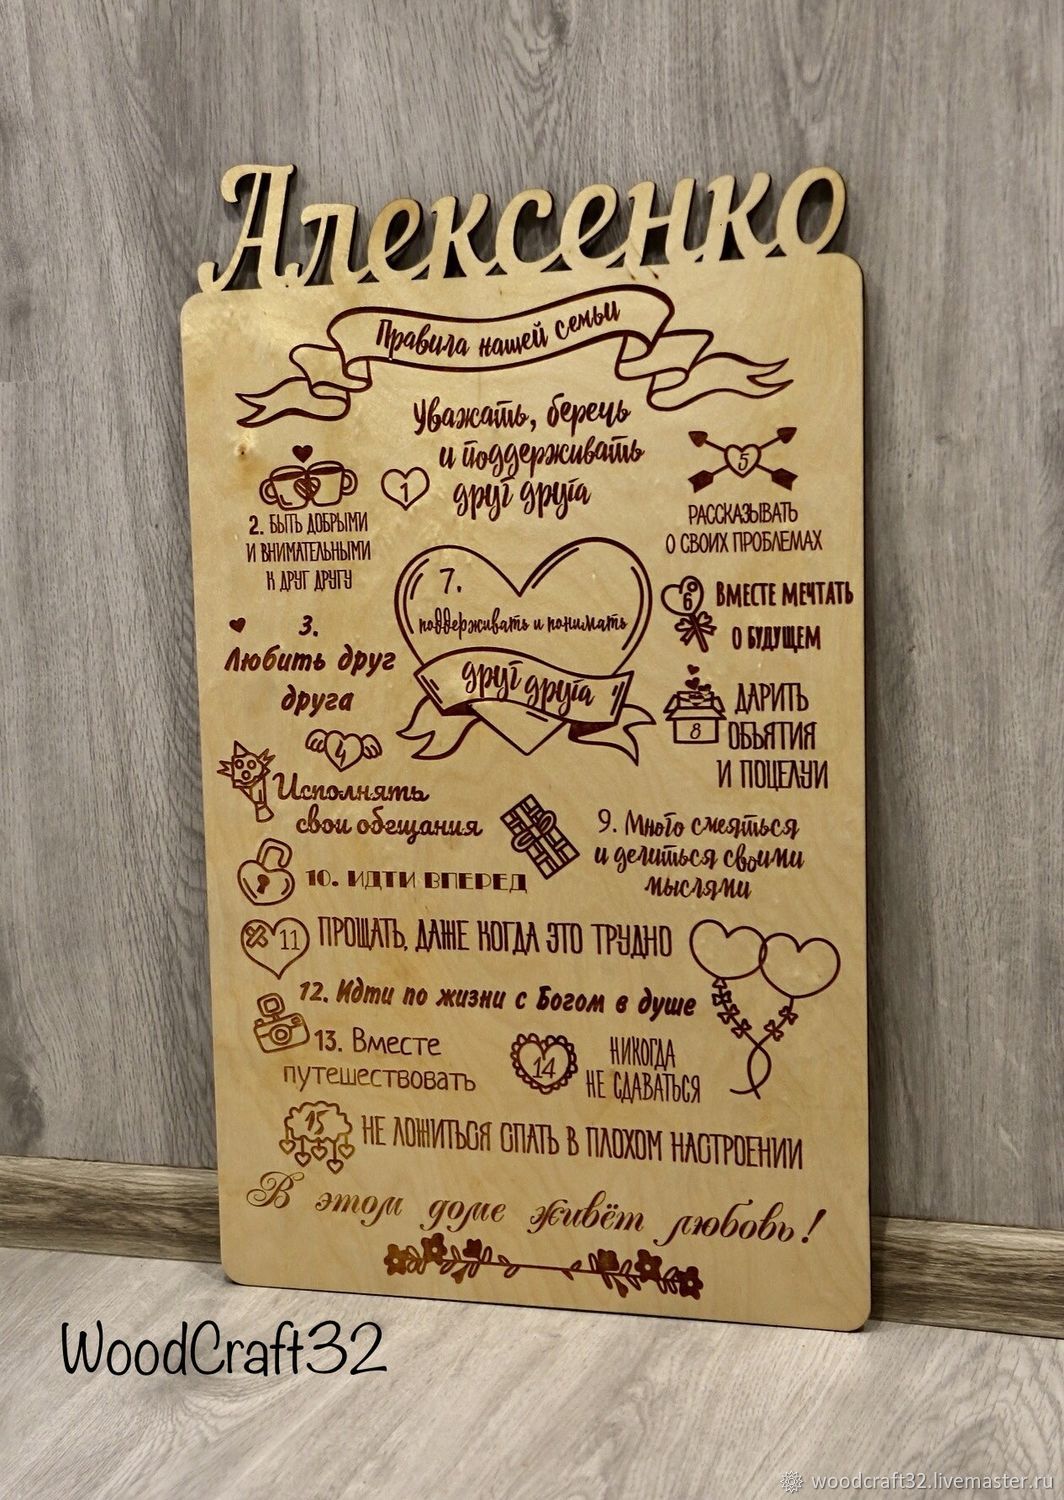 Алексенко
Правила нашей семьи
1
Уважать, беречь
и поддерживать
друг друга
2. БЫТЬ ДОБРЫМИ
И ВНИМАТЕЛЬНЫМИ
К ДРУГ ДРУГУ
3.
Любить друг
друга
4
Исполнять
свои обещания
5
РАССКАЗЫВАТЬ
О СВОИХ ПРОБЛЕМАХ
6
ВМЕСТЕ МЕЧТАТЬ
О БУДУЩЕМ
7.
поддерживать и понимать
друг друга
8
ДАРИТЬ
ОБЪЯТИЯ
И ПОЦЕЛУИ
9. Много смеяться
и делиться своими
мыслями
10. ИДТИ ВПЕРЕД
11 ПРОЩАТЬ, ДАЖЕ КОГДА ЭТО ТРУДНО
12. Идти по жизни с Богом в душе
13. Вместе
путешествовать
14
НИКОГДА
НЕ СДАВАТЬСЯ
15 НЕ ЛОЖИТЬСЯ СПАТЬ В ПЛОХОМ НАСТРОЕНИИ
В этом доме живёт любовь!
WoodCraft32
woodcraft32.livemaster.ru